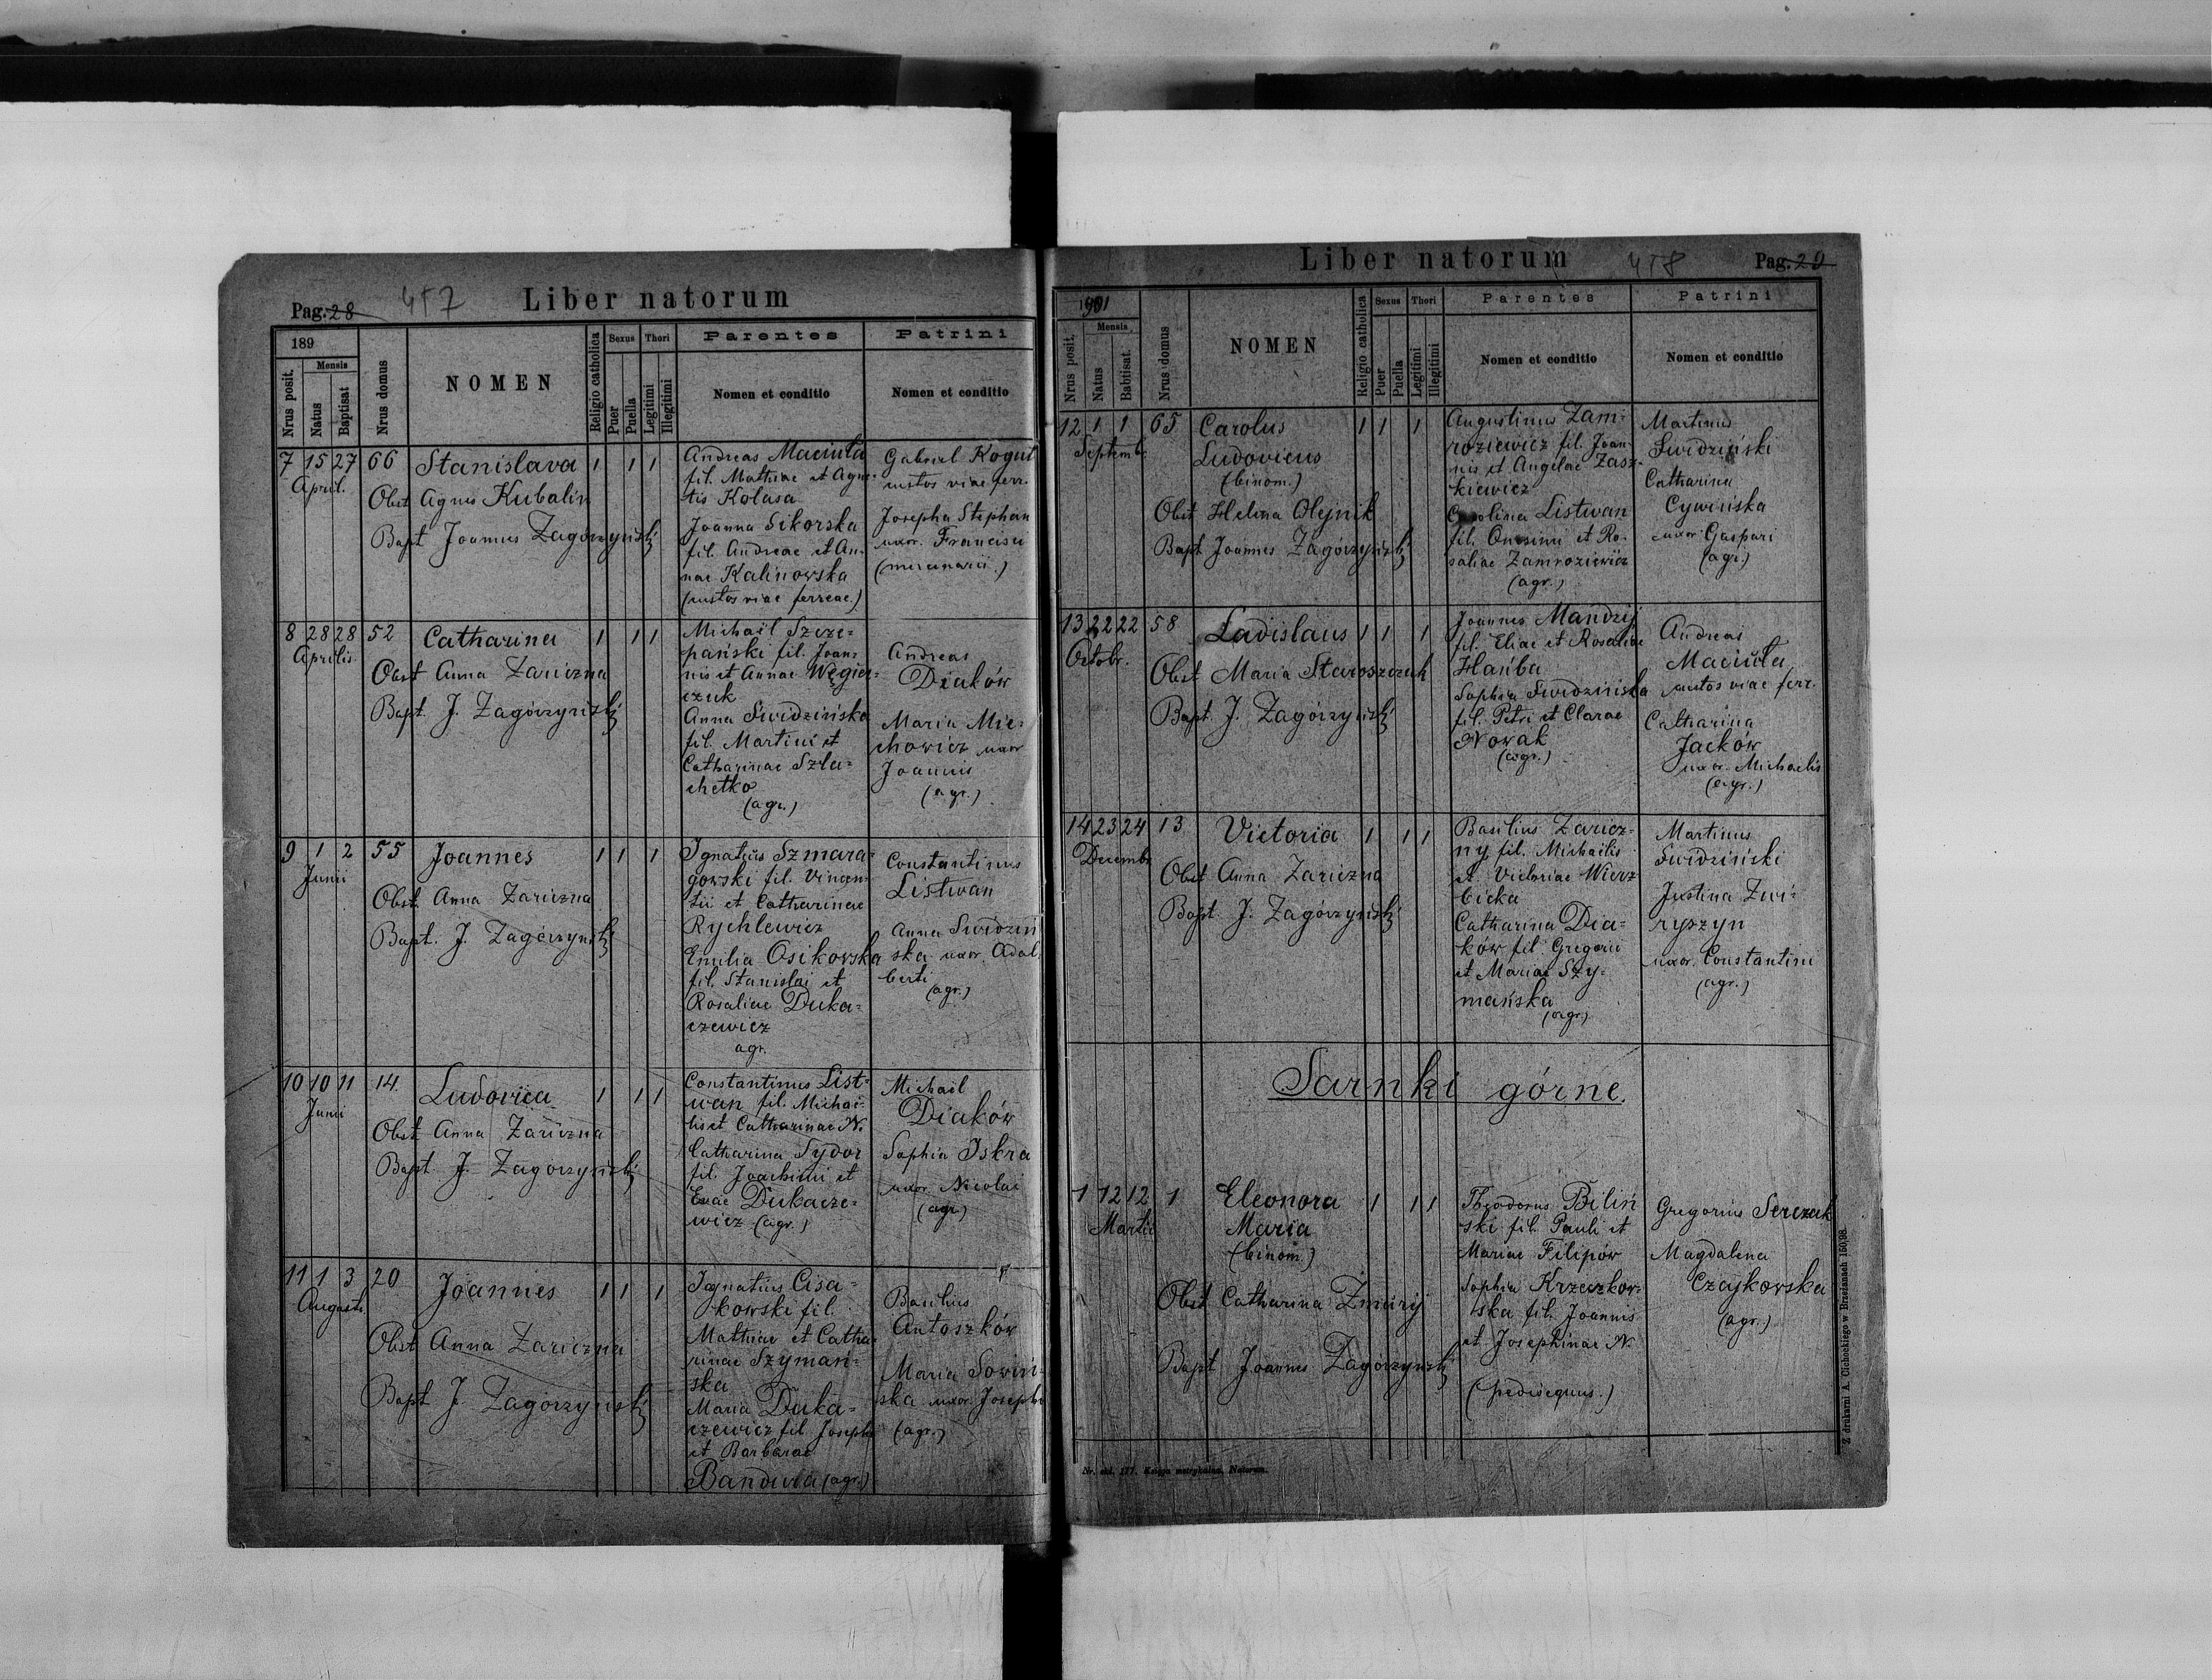 Pag. 28
457
Liber natorum
189
Nrus posit.
Mensis
Natus
Baptisat
Nrus domus
NOMEN
Religio catholica
Sexus
Puer
Puella
Thori
Legitimi
Illegitimi
Parentes
Nomen et conditio
Patrini
Nomen et conditio
7 15 27 66 Stanislava 1 1 1
April.
Obst Agnes Kubalin
Bapt Joannes Zagórzyński
Andreas Maciuła
fil. Mathiae et Agne-
tis Kolasa
Joanna Sikorska
fil. Andreae et An-
nae Kalinowska
(custos viae ferreae)
Gabriel Kogut
custos viae ferr.
Josepha Stephan
uxor. Francisci
(mercenarii.)
8 28 28 52 Catharina 1 1 1
Aprilis
Obst Anna Zariczna
Bapt. J. Zagórzyński
Michaël Szcze-
pański fil. Joan-
nis et Annae Węgier-
czuk
Anna Świdzińska
fil. Martini et
Catharinae Szla-
chetko
(agr.)
Andreas
Diaków
Maria Mie-
chowicz uxor
Joannis
(agr.)
9 1 2 55 Joannes 1 1 1
Junii
Obst. Anna Zariczna
Bapt. J. Zagórzyński
Ignatius Szmara-
gowski fil. Vincen-
tii et Catharinae
Rychlewicz
Emilia Osikowska
fil. Stanislai et
Rosaliae Duka-
czewicz
agr.
Constantinus
Listwan
Anna Świdziń
ska uxor. Adal.
berti
(agr.)
10 10 11 14. Ludovica 1 1 1
Junii
Obst Anna Zariczna
Bapt. J. Zagórzyński
Constantinus List-
wan fil. Michaë-
lis et Catharinae N.
Catharina Sydor
fil. Joachimi et
Evae Dukacze-
wicz (agr.)
Michaël
Diaków
Sophia Iskra
uxor. Nicolai
(agr.)
11 1 3 20 Joannes 1 1 1
Augusti
Obst Anna Zariczna
Bapt J. Zagórzyński
Ignatius Cisa-
kowski fil.
Mathiae et Catha-
rinae Szymań-
ska
Maria Duka-
czewicz fil. Josephi
et Barbarae
Bandura (agr.)
Basilius
Antoszków
Maria Sowiń-
ska uxor. Josephi
(agr.)
Liber natorum
458
Pag. 29
1901
Nrus posit.
Mensis
Natus
Babtisat.
Nrus domus
NOMEN
Religio catholica
Sexus
Puer
Puella
Thori
Legitimi
Illegitimi
Parentes
Nomen et conditio
Patrini
Nomen et conditio
12 1 1 65 Carolus 1 1 1
Septemb.
Ludovicus
(binom.)
Obst Helena Olejnik
Bapt Joannes Zagórzyński
Augustinus Zam-
roziewicz fil. Joan-
nis et Angelae Zasz-
kiewicz
Carolina Listwan
fil. Onesimi et Ro-
saliae Zamroziewicz
(agr.)
Martinus
Świdziński
Catharina
Cywińska
uxor Gaspari
(agr.)
13 22 22 58 Ladislaus 1 1 1
Octobr.
Obst Maria Staroszczuk
Bapt J. Zagórzyński
Joannes Mandzij
fil. Eliae et Rosaliae
Hańba
Sophia Świdzińska
fil. Petri et Clarae
Nowak
(agr.)
Andreas
Maciuła
custos viae ferr.
Catharina
Jacków
uxor. Michaelis
(agr.)
14 23 24 13 Victoria 1 1 1
Decembr.
Obst Anna Zariczna
Bapt J. Zagórzyński
Basilius Zaricz-
ny fil. Michaëlis
et Victoriae Wierz
bicka
Catharina Dia-
ków fil. Gregorii
et Mariae Szy-
mańska
(agr.)
Martinus
Świdziński
Justina Zwi-
ryszyn
uxor. Constantini
(agr.)
Sarnki górne.
1 12 12 1 Eleonora 1 1 1
Martii
Maria
(binom.)
Obst Catharina Żmurij
Bapt Joannes Zagórzyński
Theodorus Biliń
ski fil. Pauli et
Mariae Filipów
Sophia Krzeczkow-
ska fil. Joannis
et Josephinae N.
(pedisequus.)
Gregorius Serczuk
Magdalena
Czajkowska
(agr.)
Nr. skł. 177. Księga metrykalna. Natorum.
Z drukarni A. Cichockiego w Brzeżanach 150/98